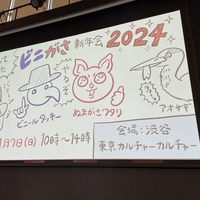 ビニがさ 新年会 2024
ビニールタッキー
ぬまがさワタリ
アオサギ
月7日(日) 10時〜14時
会場:渋谷
東京カルチャーカルチャー